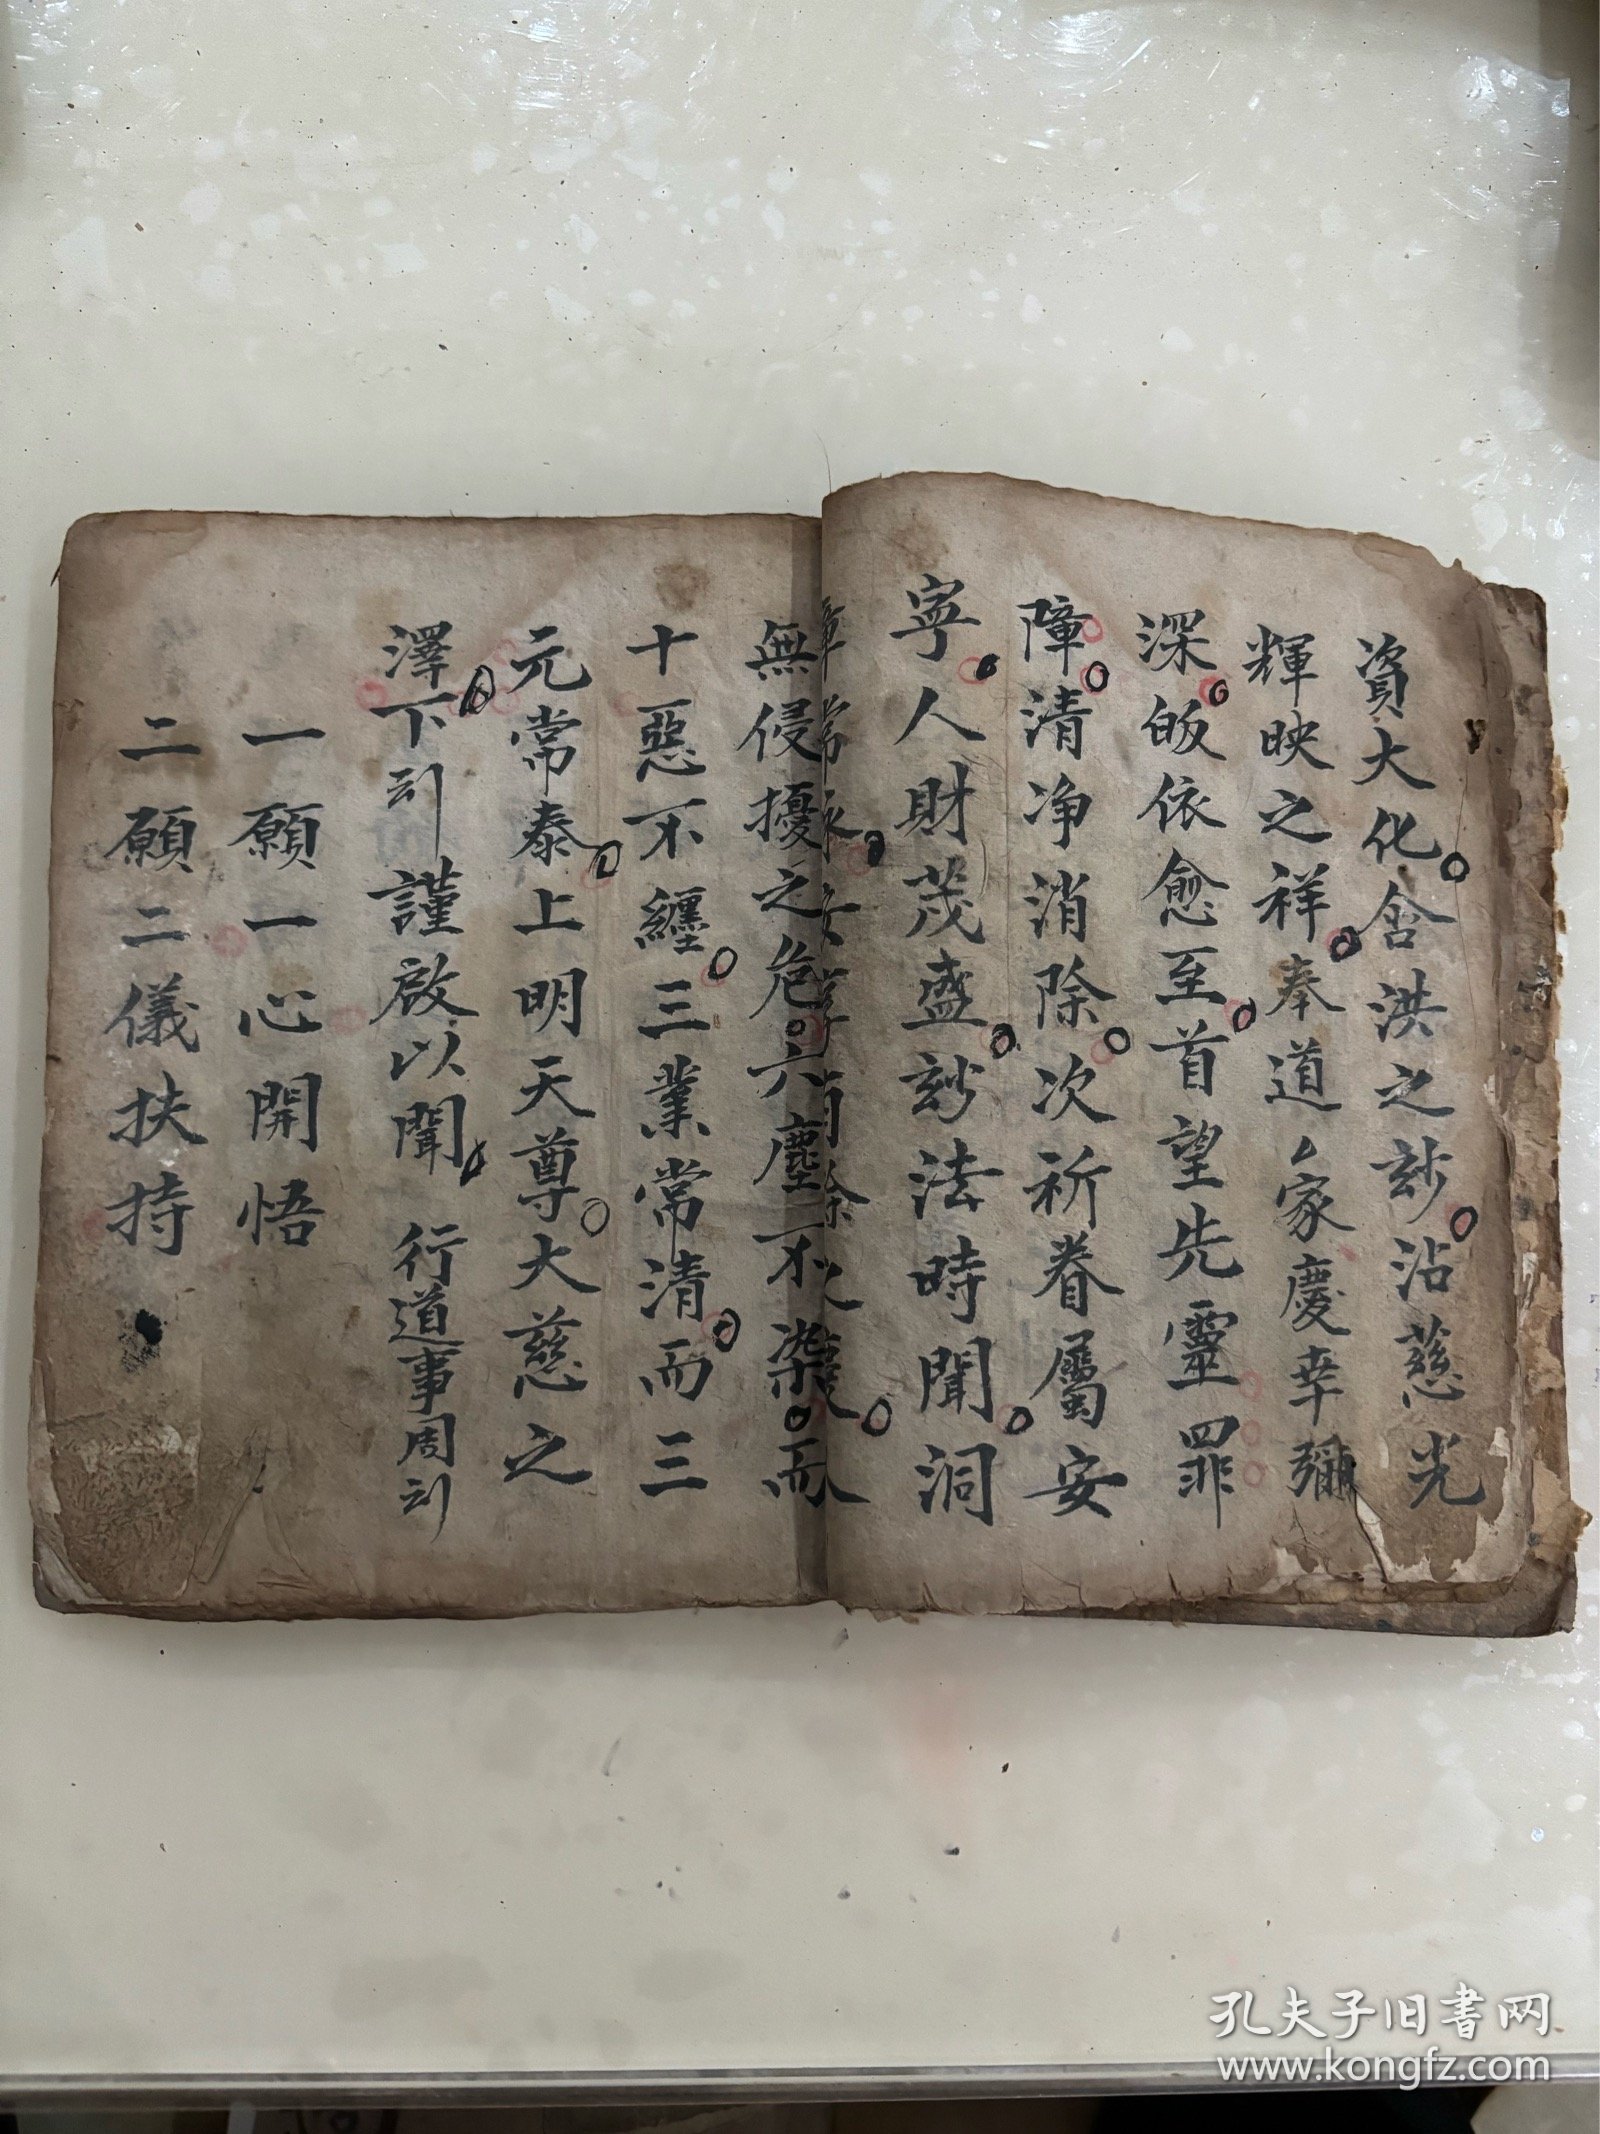 資大化含洪之玅沾慈光
輝映之祥奉道々家慶幸彌
深皈依愈至首望先靈罪
障清净消除次祈眷屬安
寧人財茂盛玅法時聞洞
無侵擾之危六塵不染而
十惡不纏三業常清而三
元常泰上明天尊大慈之
澤下云謹啟以聞 行道事周云
一願一心開悟
二願二儀扶持
孔夫子旧书网
www.kongfz.com